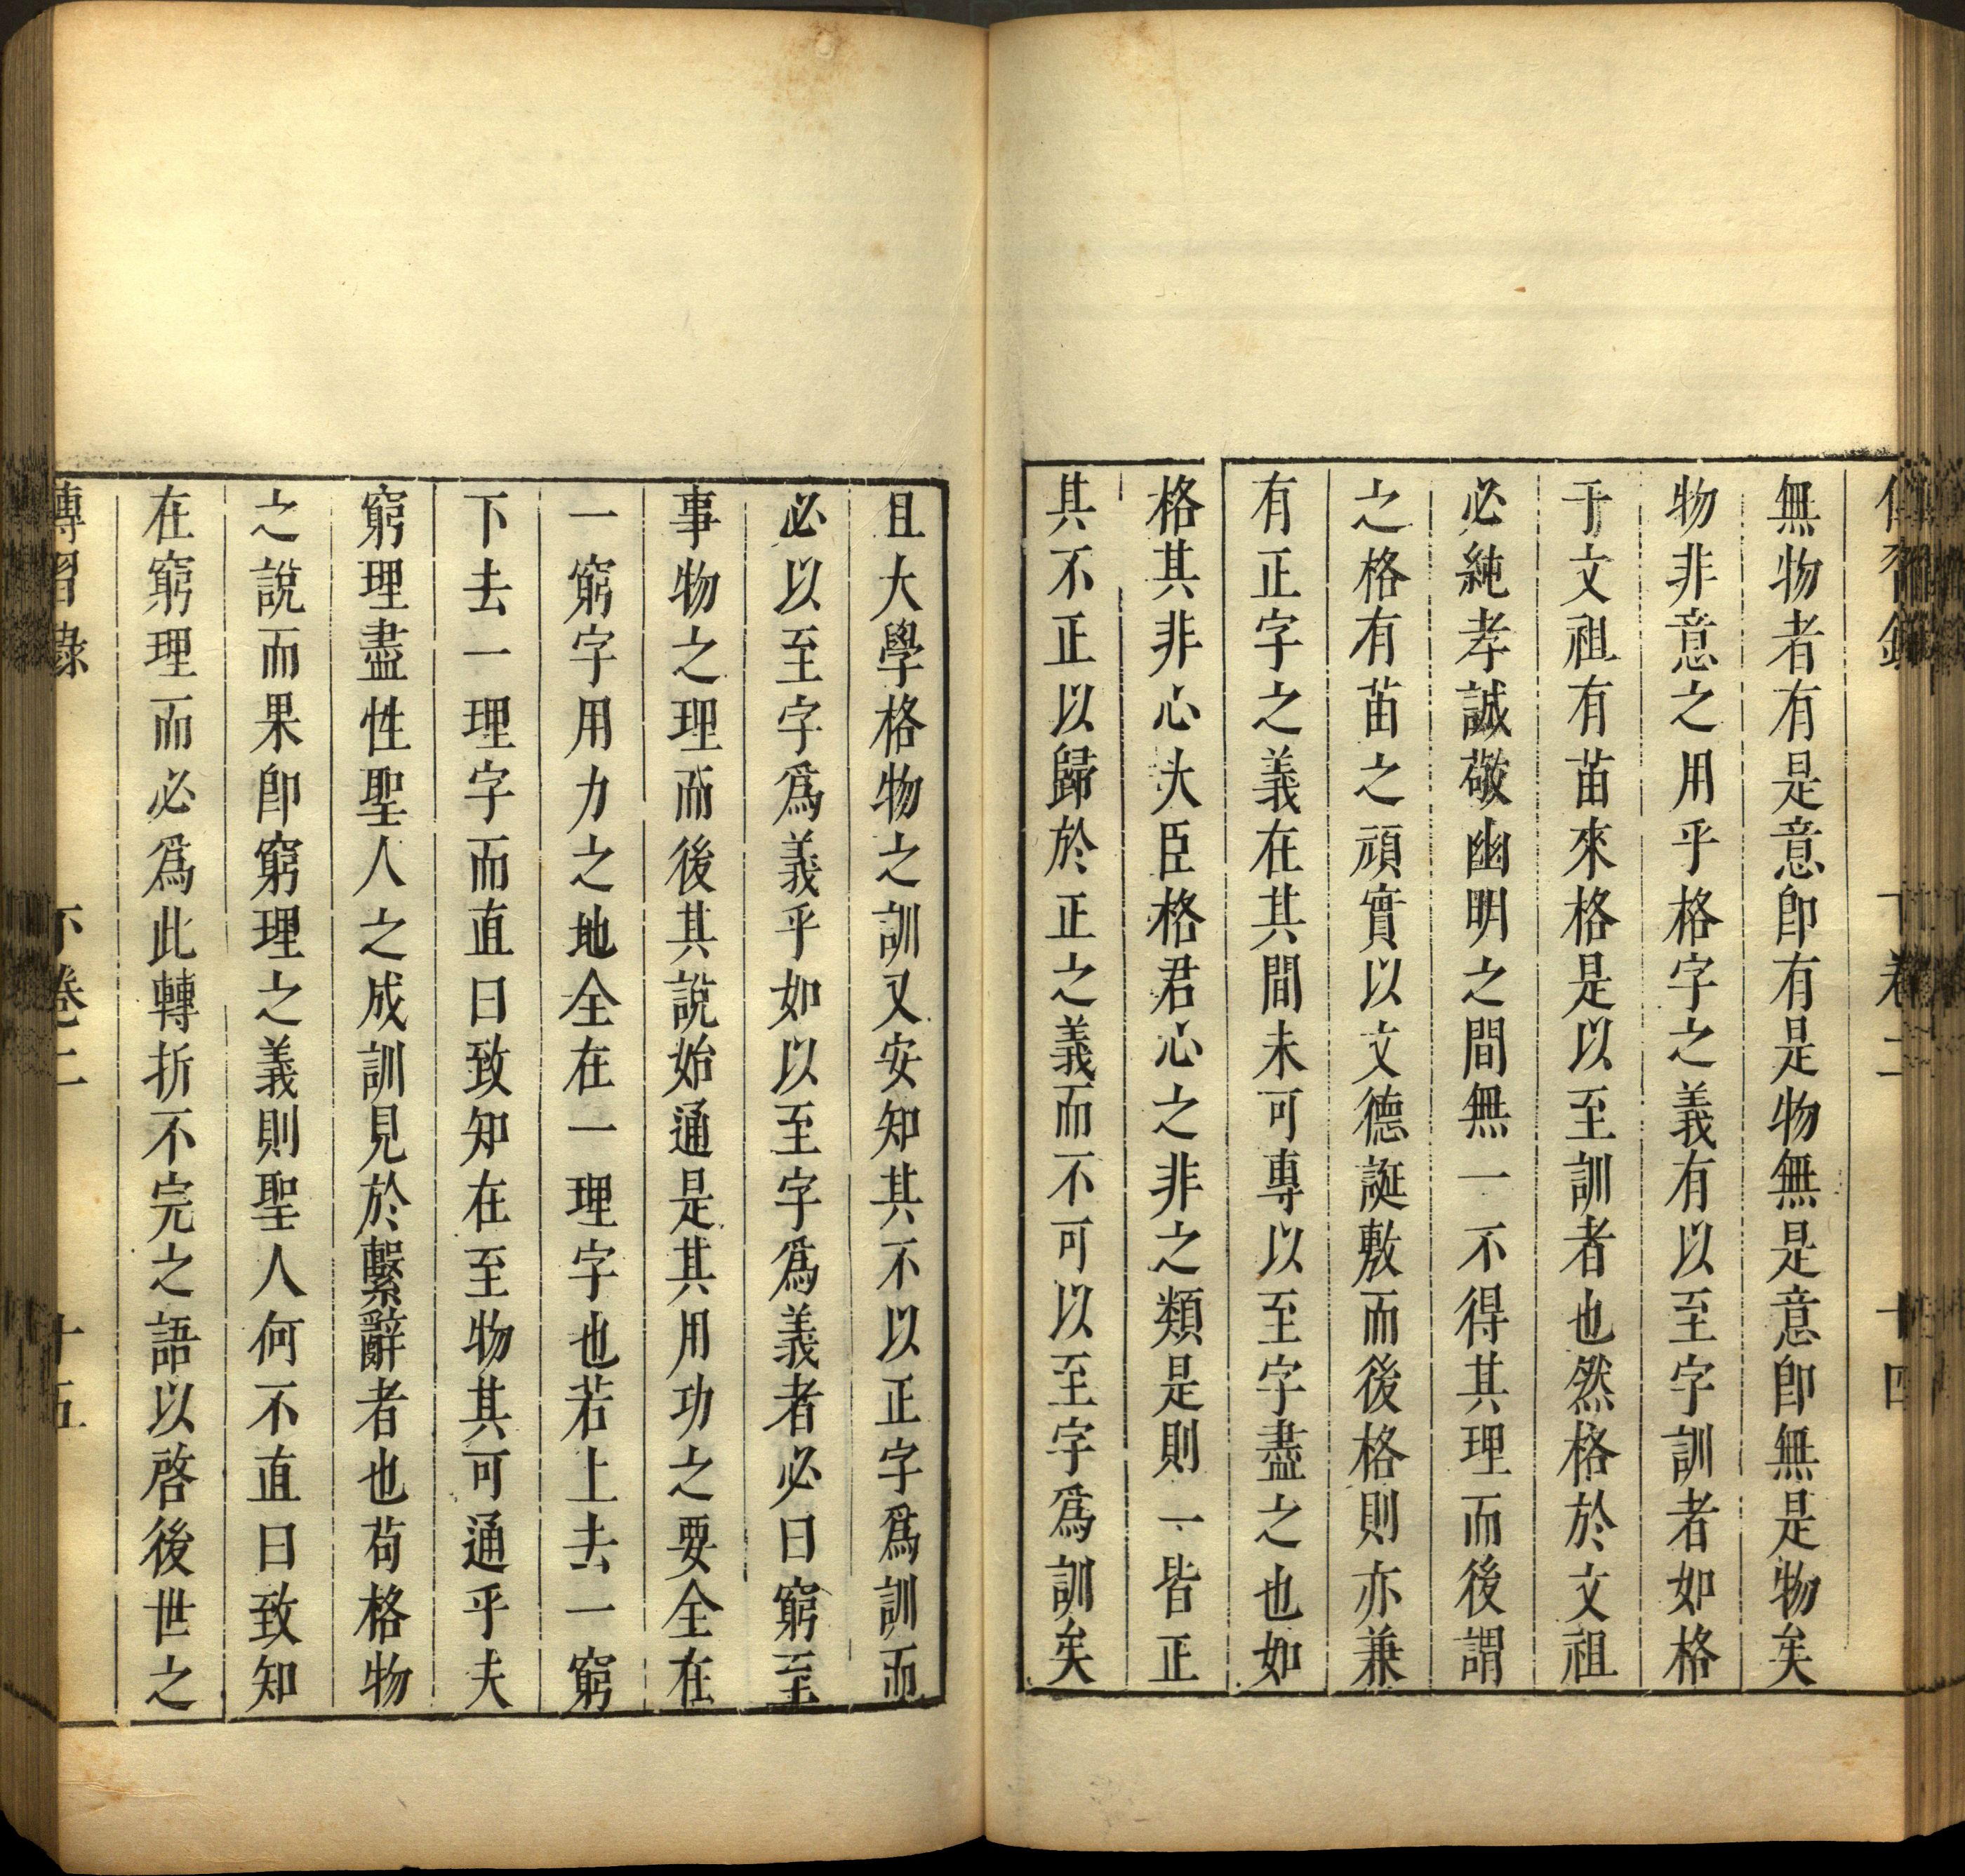 傳習錄 下卷二 十四
無物者有是意卽有是物無是意卽無是物矣
物非意之用乎格字之義有以至字訓者如格
于文祖有苗來格是以至訓者也然格於文祖
必純孝誠敬幽明之間無一不得其理而後謂
之格有苗之頑實以文德誕敷而後格則亦兼
有正字之義在其間未可專以至字盡之也如
格其非心大臣格君心之非之類是則一皆正
其不正以歸於正之義而不可以至字爲訓矣
且大學格物之訓又安知其不以正字爲訓而
必以至字爲義乎如以至字爲義者必曰窮至
事物之理而後其說始通是其用功之要全在
一窮字用力之地全在一理字也若上去一窮
下去一理字而直曰致知在至物其可通乎夫
窮理盡性聖人之成訓見於繫辭者也苟格物
之說而果卽窮理之義則聖人何不直曰致知
在窮理而必爲此轉折不完之語以啓後世之
傳習錄 下卷二 十五